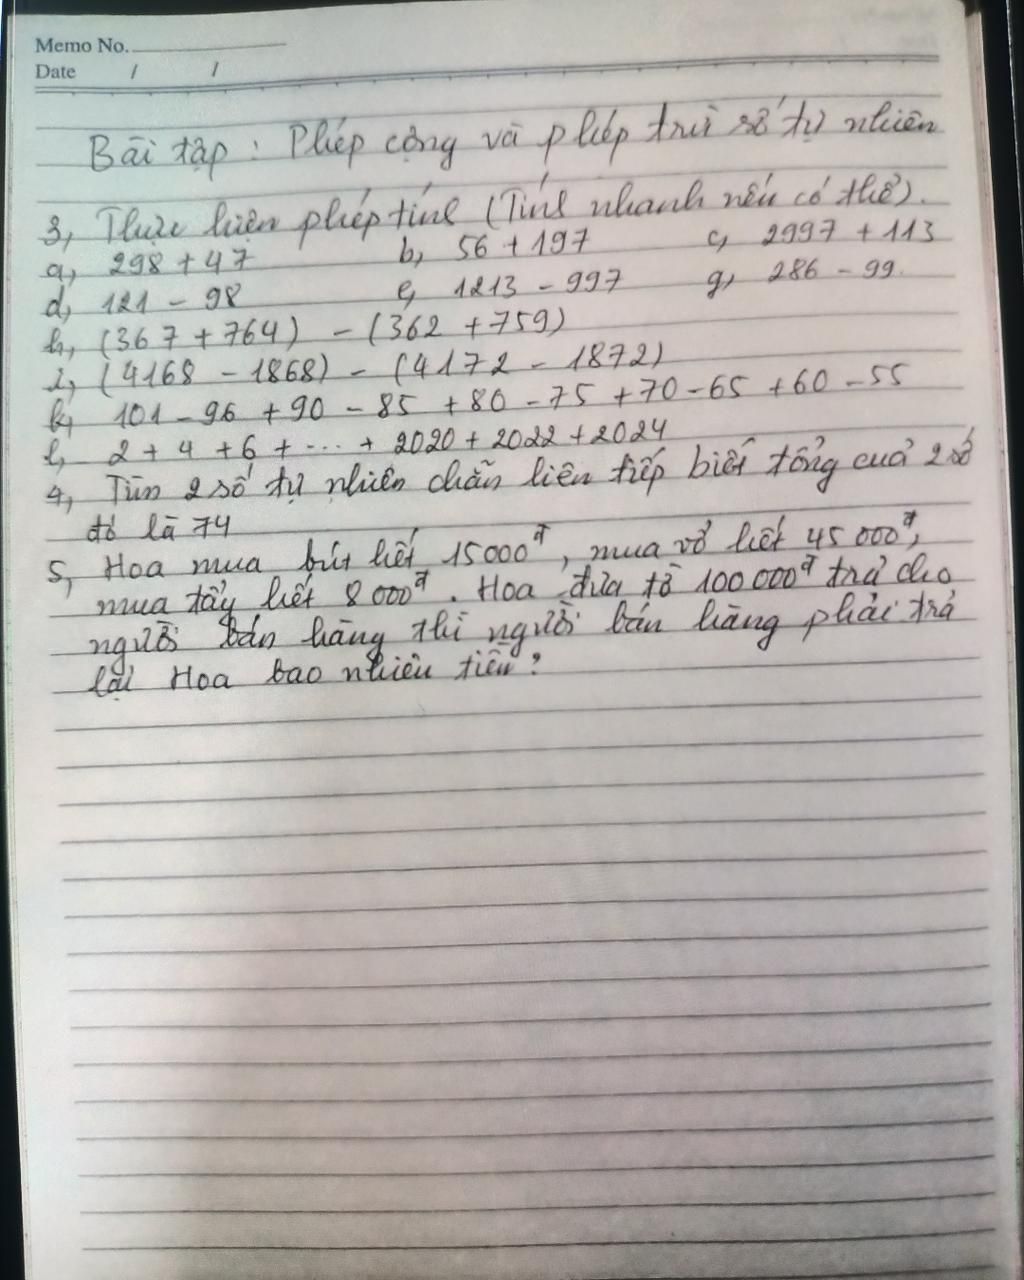 Memo No.
Date / /
Bài tập : Phép cộng và phép trừ số tự nhiên
3, Thực hiện phép tính (Tính nhanh nếu có thể).
a, 298 + 47 b, 56 + 197 c, 2997 + 113
d, 121 - 98 e, 1213 - 997 g, 286 - 99.
h, (367 + 764) - (362 + 759)
i, (4168 - 1868) - (4172 - 1872)
k, 101 - 96 + 90 - 85 + 80 - 75 + 70 - 65 + 60 - 55
l, 2 + 4 + 6 + .... + 2020 + 2022 + 2024
4, Tìm 2 số tự nhiên chẵn liên tiếp biết tổng cuả 2 số
đó là 74
5, Hoa mua bút hết 15000đ, mua vở hết 45 000đ,
mua tẩy hết 8 000đ. Hoa đưa tờ 100 000đ trả cho
người bán hàng thì người bán hàng phải trả
lại Hoa bao nhiêu tiền ?